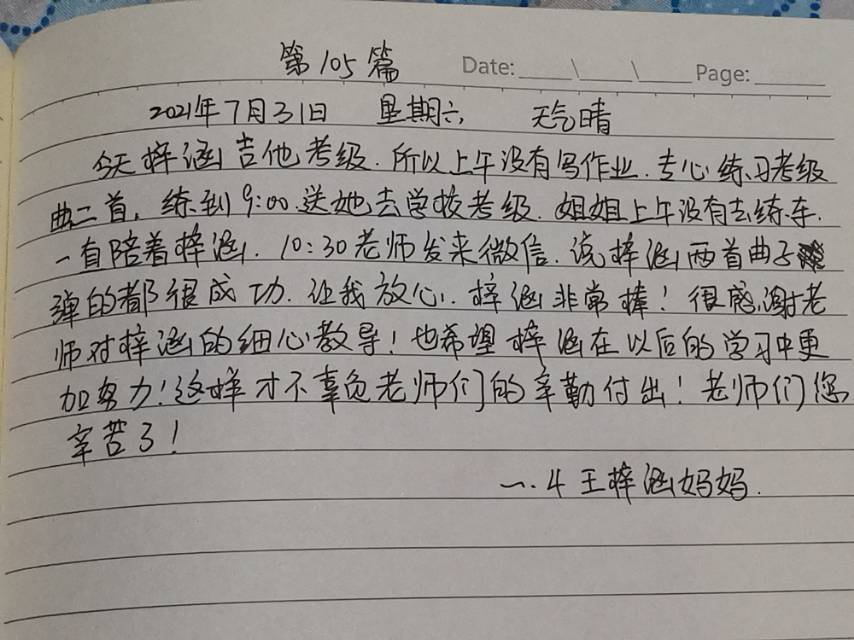 第105篇
Date: ____\____\____ Page: ______
2021年7月31日 星期六 天气晴
今天梓涵吉他考级.所以上午没有写作业.专心练习考级
曲二首,练到9:00.送她去学校考级.姐姐上午没有去练车.
一直陪着梓涵.10:30老师发来微信.说梓涵两首曲子
弹的都很成功.让我放心.梓涵非常棒!很感谢老
师对梓涵的细心教导!也希望梓涵在以后的学习中更
加努力!这样才不辜负老师们的辛勤付出!老师们您
辛苦了!
一.4王梓涵妈妈.